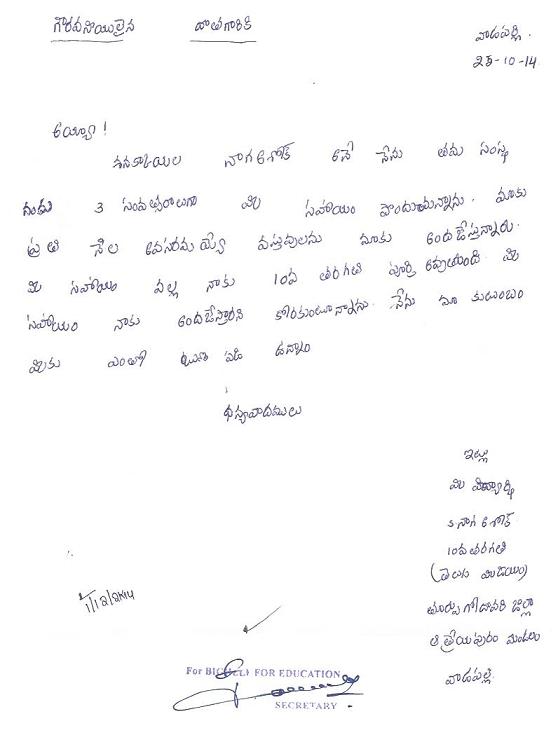 గౌరవనీయులైన దాతగారికి
వాడపల్లి.
25-10-14.
అయ్యా!
నాగ అశోక్ అనే నేను తమ సంస్థ
నందు 3 సంవత్సరాలుగా మీ సహాయం పొందుతున్నాను. మాకు
ప్రతి నెల అవసరమయ్యే వస్తువులను మాకు అందజేస్తున్నారు.
మీ సహాయం వల్ల నాకు 10వ తరగతి పూర్తి అవుతుంది. మీ
సహాయం నాకు అందజేస్తారని కోరుకుంటూన్నాను. నేను మా కుటుంబం
మీకు ఎంతో ఋణ పడి ఉన్నాం
ధన్యవాదములు
ఇట్లు
మీ విద్యార్థి
S నాగ అశోక్
10వ తరగతి
(తెలుగు మీడియం)
తూర్పు గోదావరి జిల్లా
ఆత్రేయపురం మండలం
వాడపల్లి.
1/12/2014
For BICYCLE FOR EDUCATION
SECRETARY